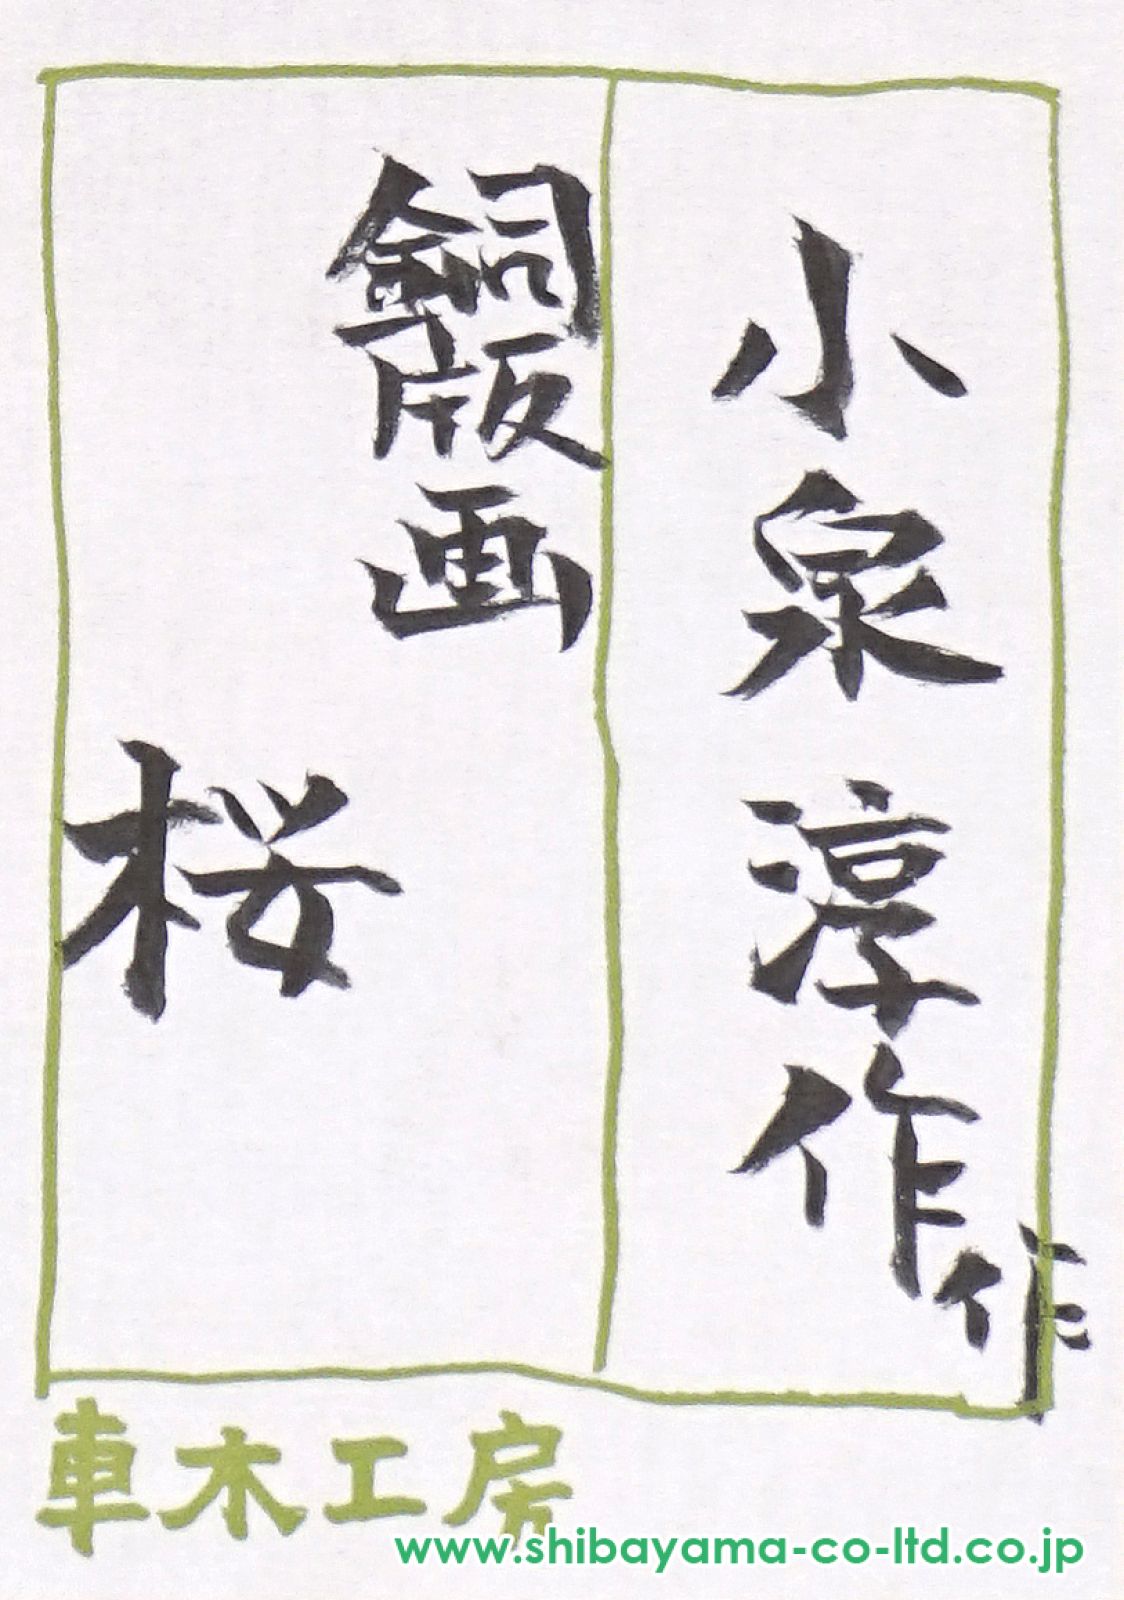 小泉淳作
作
銅版画
桜
車木工房
www.shibayama-co-ltd.co.jp